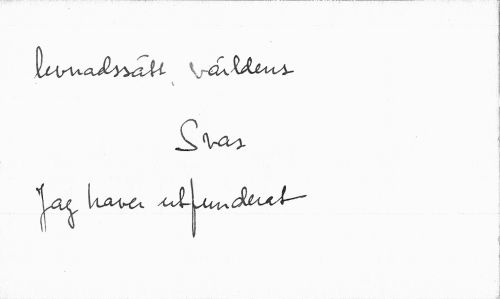 levnadssätt, världens
Svas
Jag haver utfunderat